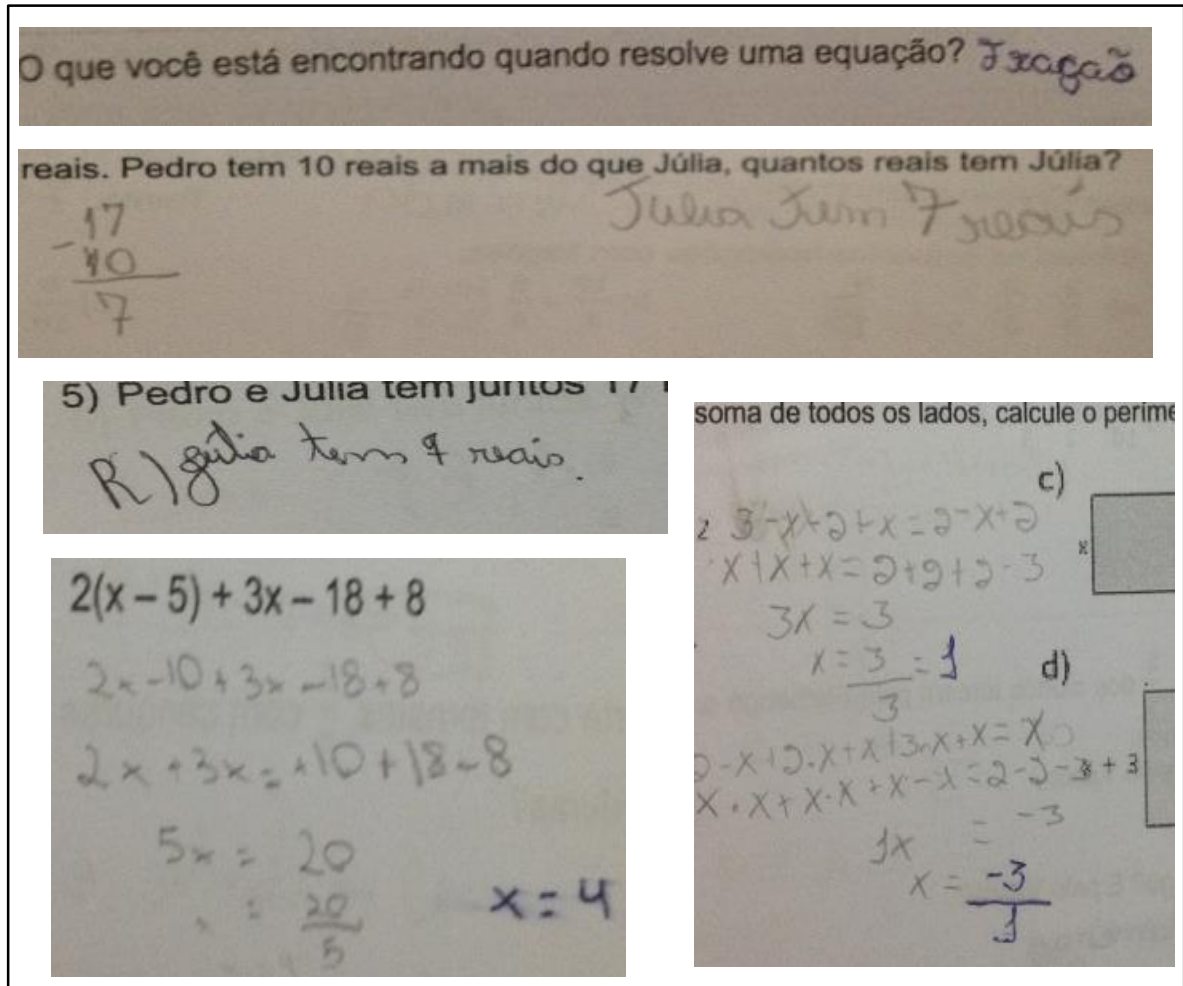 O que você está encontrando quando resolve uma equação? Fração
reais. Pedro tem 10 reais a mais do que Júlia, quantos reais tem Júlia?
17
Julia tem 7 reais
- 10
7
5) Pedro e Júlia tem juntos 17
R) Júlia tem 7 reais.
2(x – 5) + 3x – 18 + 8
2x - 10 + 3x - 18 + 8
2x + 3x = +10 + 18 - 8
5x = 20
= 20
5
x = 4
soma de todos os lados, calcule o períme
c)
3 - x + 2 + x = 2 - x + 2
x
x + x + x = 2 + 2 + 2 - 3
3x = 3
x = 3 = 1
3
d)
+ 3
1x = -3
x = -3
1